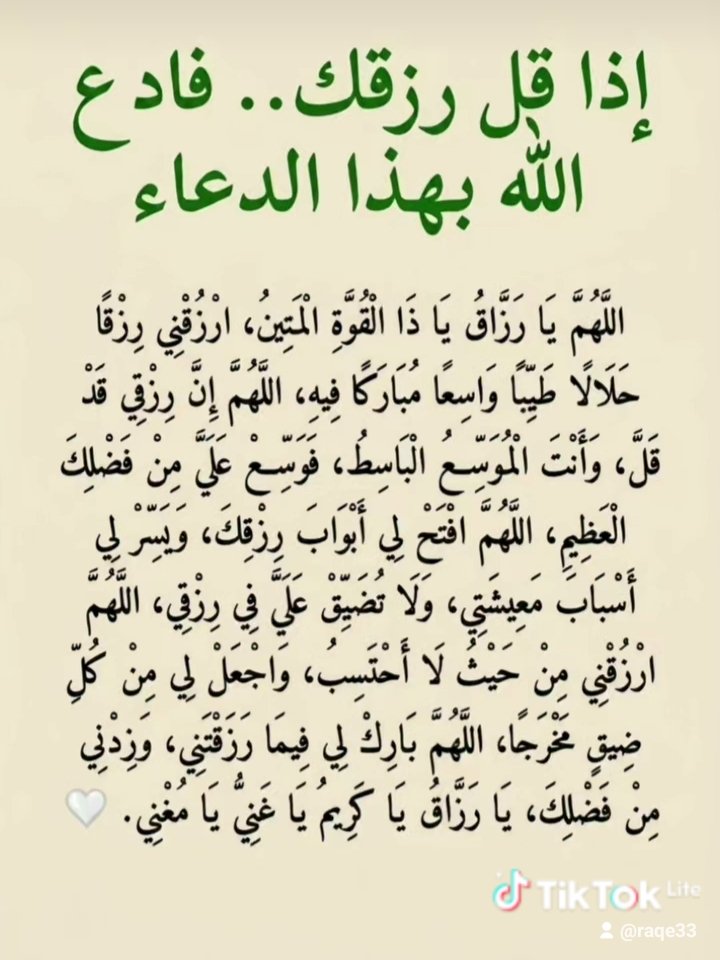 إذا قل رزقك.. فادع
الله بهذا الدعاء
اللَّهُمَّ يَا رَزَّاقُ يَا ذَا الْقُوَّةِ الْمَتِينُ، ارْزُقْنِي رِزْقًا
حَلَالًا طَيِّبًا وَاسِعًا مُبَارَكًا فِيهِ، اللَّهُمَّ إِنَّ رِزْقِي قَدْ
قَلَّ، وَأَنْتَ الْمُوَسِّعُ الْبَاسِطُ، فَوَسِّعْ عَلَيَّ مِنْ فَضْلِكَ
الْعَظِيمِ، اللَّهُمَّ افْتَحْ لِي أَبْوَابَ رِزْقِكَ، وَيَسِّرْ لِي
أَسْبَابَ مَعِيشَتِي، وَلَا تُضَيِّقْ عَلَيَّ فِي رِزْقِي، اللَّهُمَّ
ارْزُقْنِي مِنْ حَيْثُ لَا أَحْتَسِبُ، وَاجْعَلْ لِي مِنْ كُلِّ
ضِيقٍ مَخْرَجًا، اللَّهُمَّ بَارِكْ لِي فِيمَا رَزَقْتَنِي، وَزِدْنِي
مِنْ فَضْلِكَ، يَا رَزَّاقُ يَا كَرِيمُ يَا غَنِيُّ يَا مُغْنِي. 🤍
TikTok Lite
@raqe33